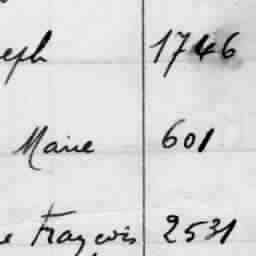 eph 1746
Marie 601
e François 2531